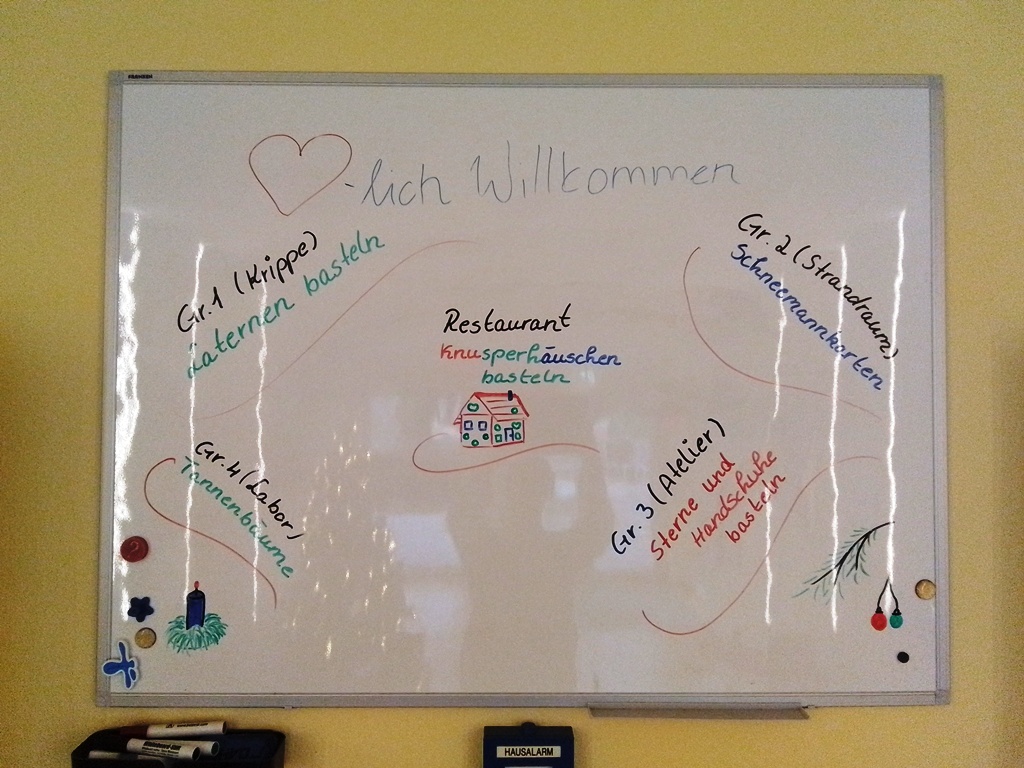 -lich Willkommen
Gr.1 (Krippe)
Laternen basteln
Gr. 2 (Strandraum)
Schneemannkarten
Restaurant
Knusperhäuschen
basteln
Gr. 4 (Labor)
Tannenbäume
Gr. 3 (Atelier)
Sterne und
Handschuhe
basteln
HAUSALARM